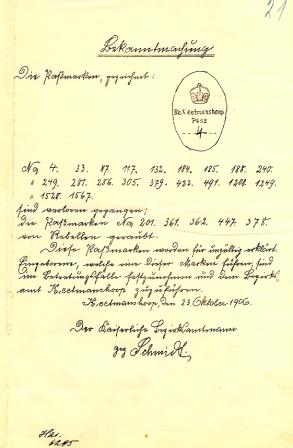 21
Bekanntmachung
Die Paßmarken, gezeichnet:
Bz. Keetmanshoop
Pass
4
No 4. 33. 87. 117. 132. 184. 185. 188. 240.
" 249. 281. 286. 305. 379. 422. 491. 1208. 1249.
" 1528. 1567.
sind verloren gegangen;
die Paßmarken No 201. 361. 362. 447. 378.
von Rebellen geraubt.
Diese Paßmarken werden für ungültig erklärt.
Eingeborene, welche eine dieser Marken führen, sind
im Betretungsfalle festzunehmen und dem Bezirks
amt Keetmanshoop zuzuführen.
Keetmanshoop den 23. Oktober 1906.
Der Kaiserliche Bezirksamtmann
gez Schmidt.